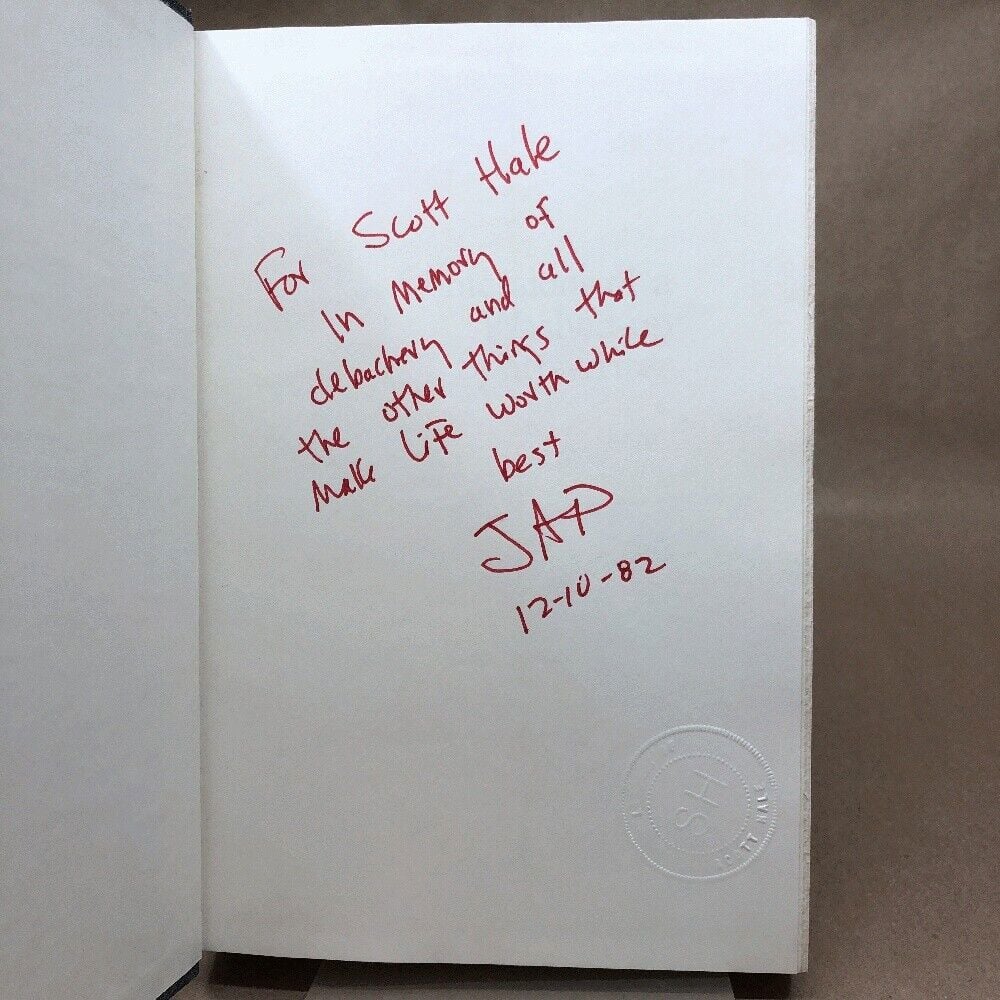 For Scott Hale
In Memory of
debachery and all
the other things that
Make Life worth while
best
JAP
12-10-82
SH